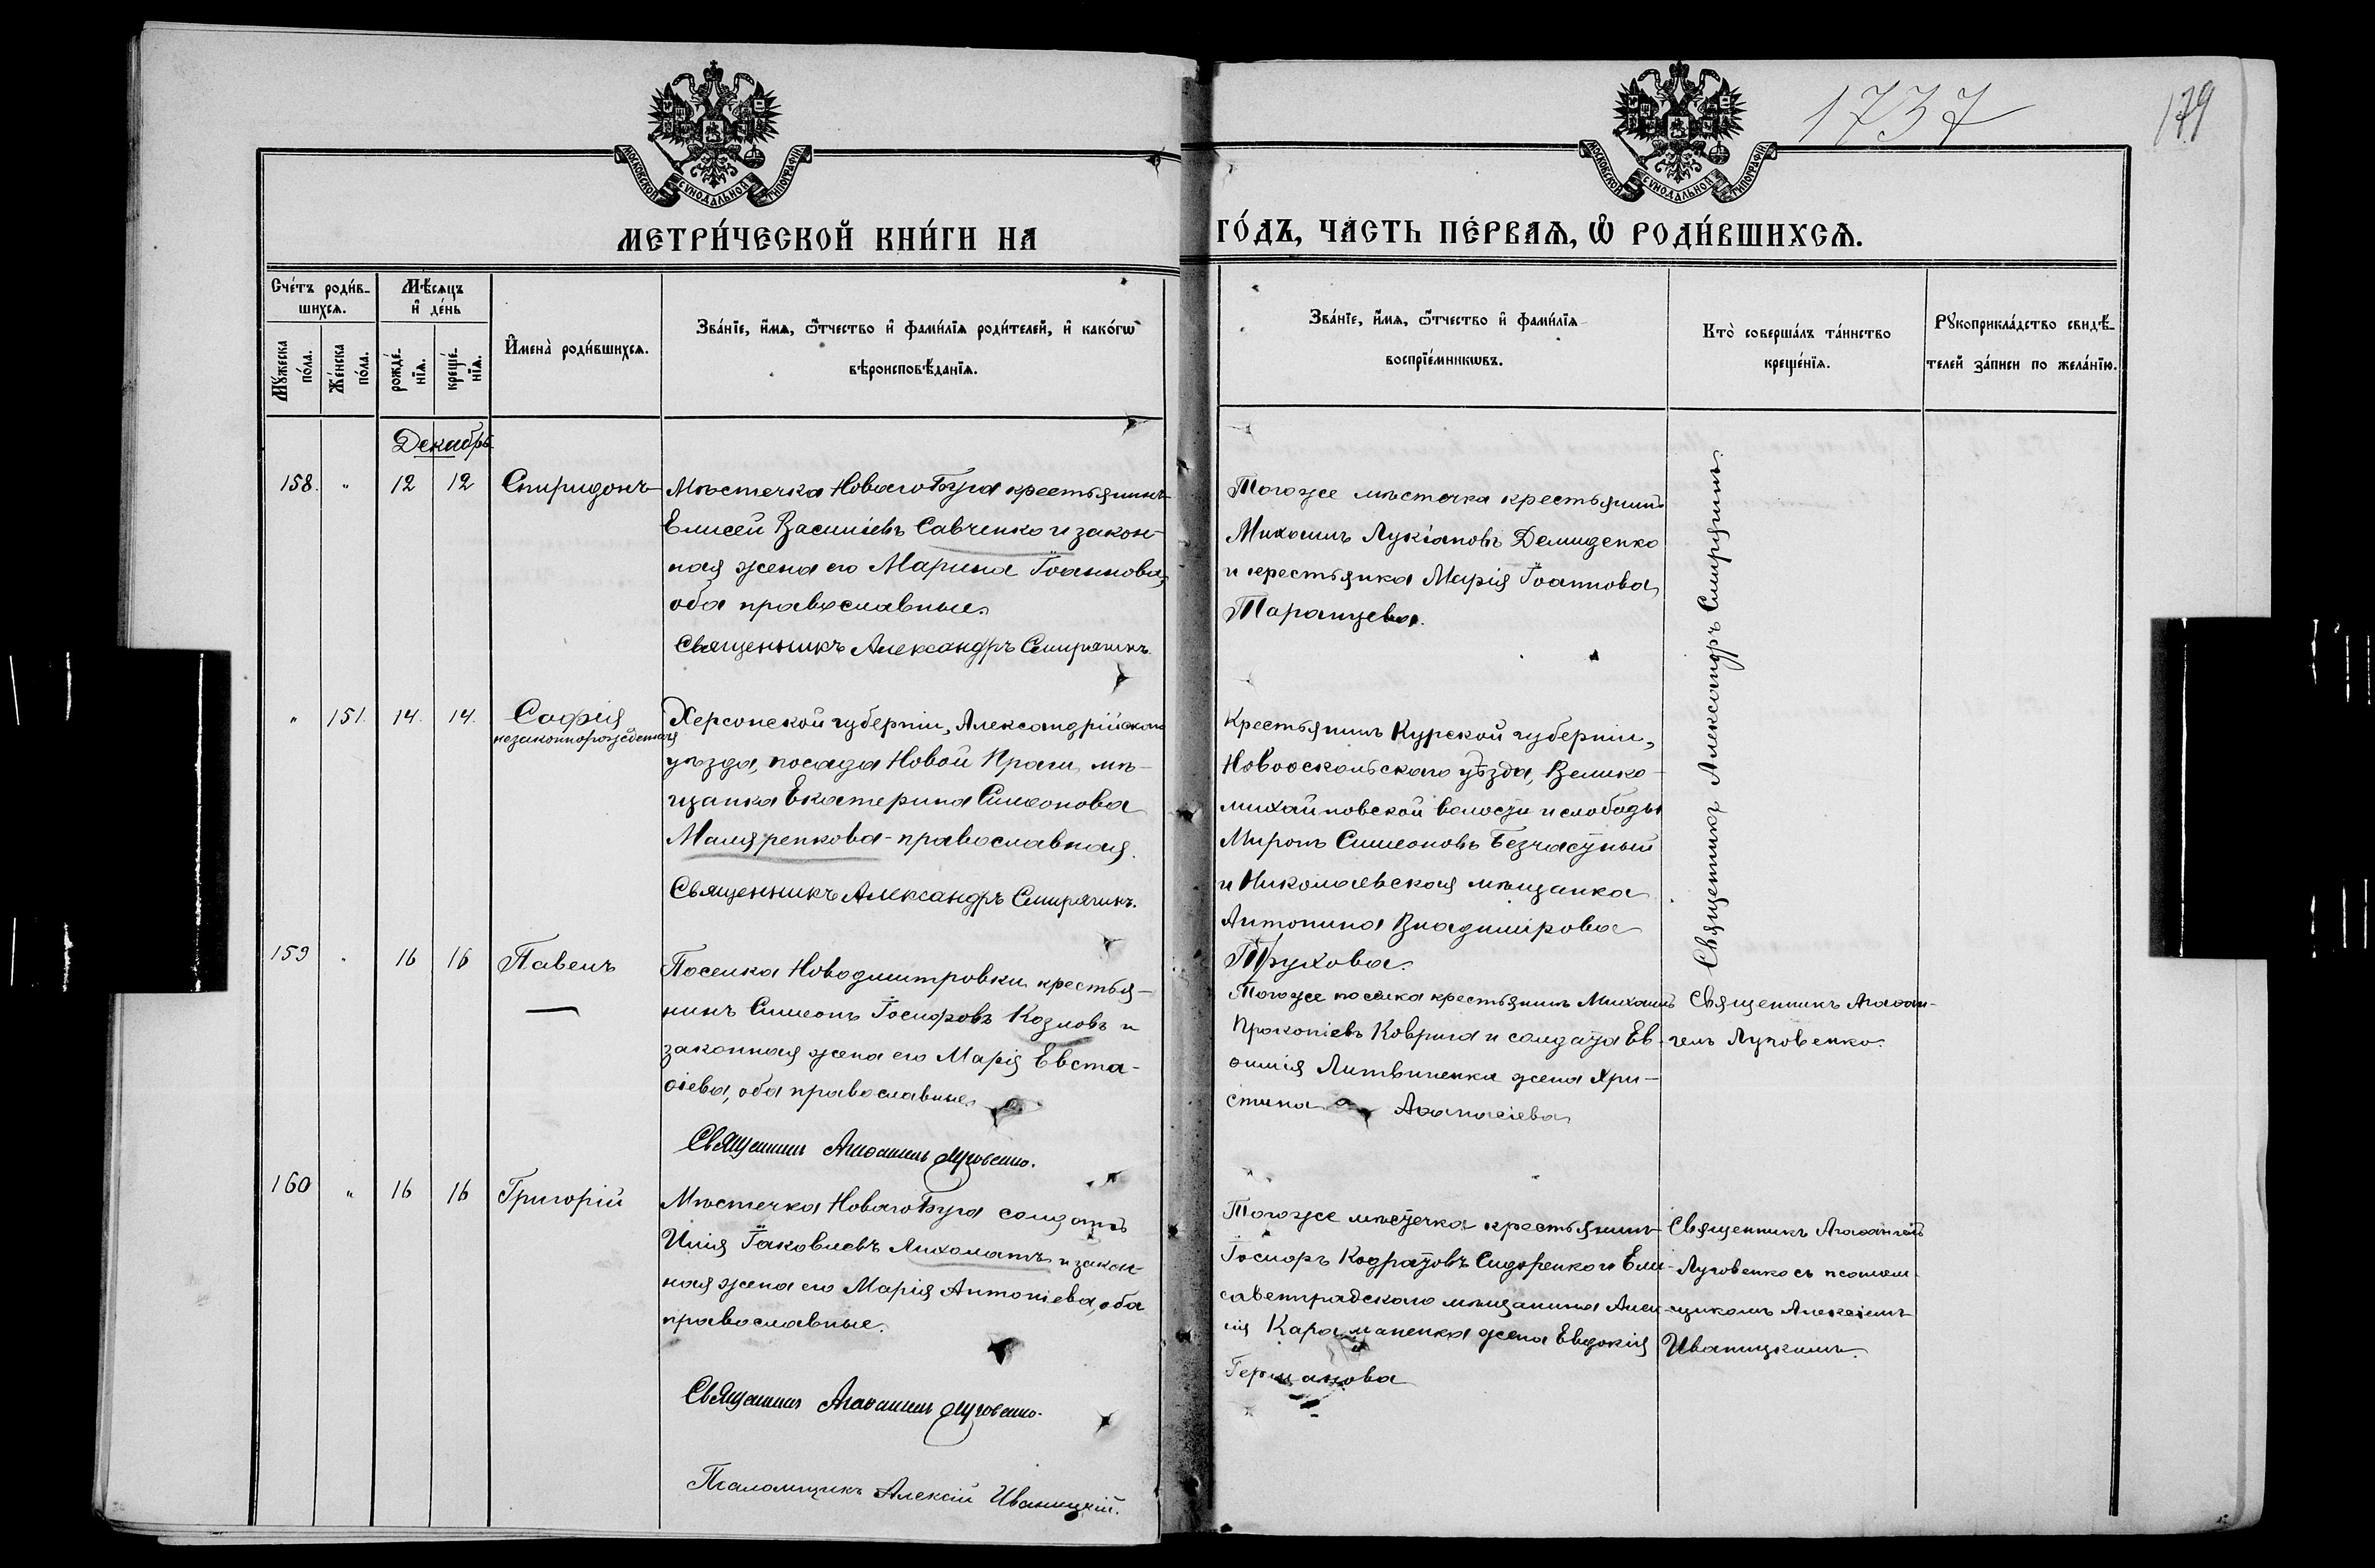 1737
179
МОСКОВСКОЙ СУНОДАЛЬНОЙ ТИПОГРАФІИ
МОСКОВСКОЙ СУНОДАЛЬНОЙ ТИПОГРАФІИ
МЕТРИ́ЧЕСКОЙ КНИ́ГИ НА ГО́ДЪ, ЧА́СТЬ ПЕ́РВАѦ, Ѽ РОДИ́ВШИХСѦ.
Сче́тъ роди́в-
шихсѧ.
Мꙋ́жеска по́ла.
Же́нска по́ла.
Мѣ́сѧцъ
и҆ де́нь
рожде́-
нїѧ.
креще́-
нїѧ.
И҆мена̀ роди́вшихсѧ.
Зва́нїе, и҆́мѧ, ѻ҆́тчество и҆ фами́лїѧ роди́телей, и҆ како́гѡ
вѣроисповѣ́данїѧ.
Зва́нїе, и҆́мѧ, ѻ҆́тчество и҆ фами́лїѧ
воспрїе́мникѡвъ.
Кто̀ соверша́лъ та́инство
креще́нїѧ.
Рꙋкоприкла́дство свидѣ́-
телей за́писи по жела́нїю.
Декабрь
158. " 12 12 Спиридонъ
Мѣстечка Новаго Буга крестьянинъ
Елисей Василіевъ Савченко и закон-
ная жена его Марина Іоаннова,
оба православные.
Священникъ Александръ Смирягинъ.
Тогоже мѣстечка крестьянинъ
Михаилъ Лукіановъ Демиденко
и крестьянка Марія Іоаннова
Таранцева.
Священникъ Александръ Смирягинъ.
" 151. 14. 14. Софія
незаконнорожденная
Херсонской губерніи, Александрійскаго
уѣзда, посада Новой Праги, мѣ-
щанка Екатерина Симеонова
Маляренкова - православная.
Священникъ Александръ Смирягинъ.
Крестьянинъ Курской губерніи,
Новооскольскаго уѣзда, Велико-
михайловской волости и слободы
Миронъ Симеоновъ Безчастный
и Николаевская мѣщанка
Антонина Владимірова
Трухова.
159 " 16 16 Павелъ
Поселка Новодмитровки крестья-
нинъ Симеонъ Іосифовъ Козловъ и
законная жена его Марія Евста-
ѳіева, оба православные.
Священникъ Агаѳангелъ Луговенко.
Тогоже поселка крестьянинъ Михаилъ
Прокопіевъ Коврига и солдата Ев-
ѳимія Литвиненка жена Хри-
стина Аѳанасіева
Священникъ Агаѳан-
гелъ Луговенко.
160 " 16 16 Григорій
Мѣстечка Новаго Буга солдатъ
Илія Іаковлевъ Лихоматъ и закон-
ная жена его Марія Антоніева, оба
православные.
Священникъ Агаѳангелъ Луговенко.
Псаломщикъ Алексій Иваницкій.
Тогоже мѣстечка крестьянинъ
Іосифъ Кодратовъ Сидоренко и Ели-
саветградскаго мѣщанина Алек-
сія Караманенка жена Евдокія
Германова
Священникъ Агаѳангелъ
Луговенко съ псалом-
щикомъ Алексіемъ
Иваницкимъ.